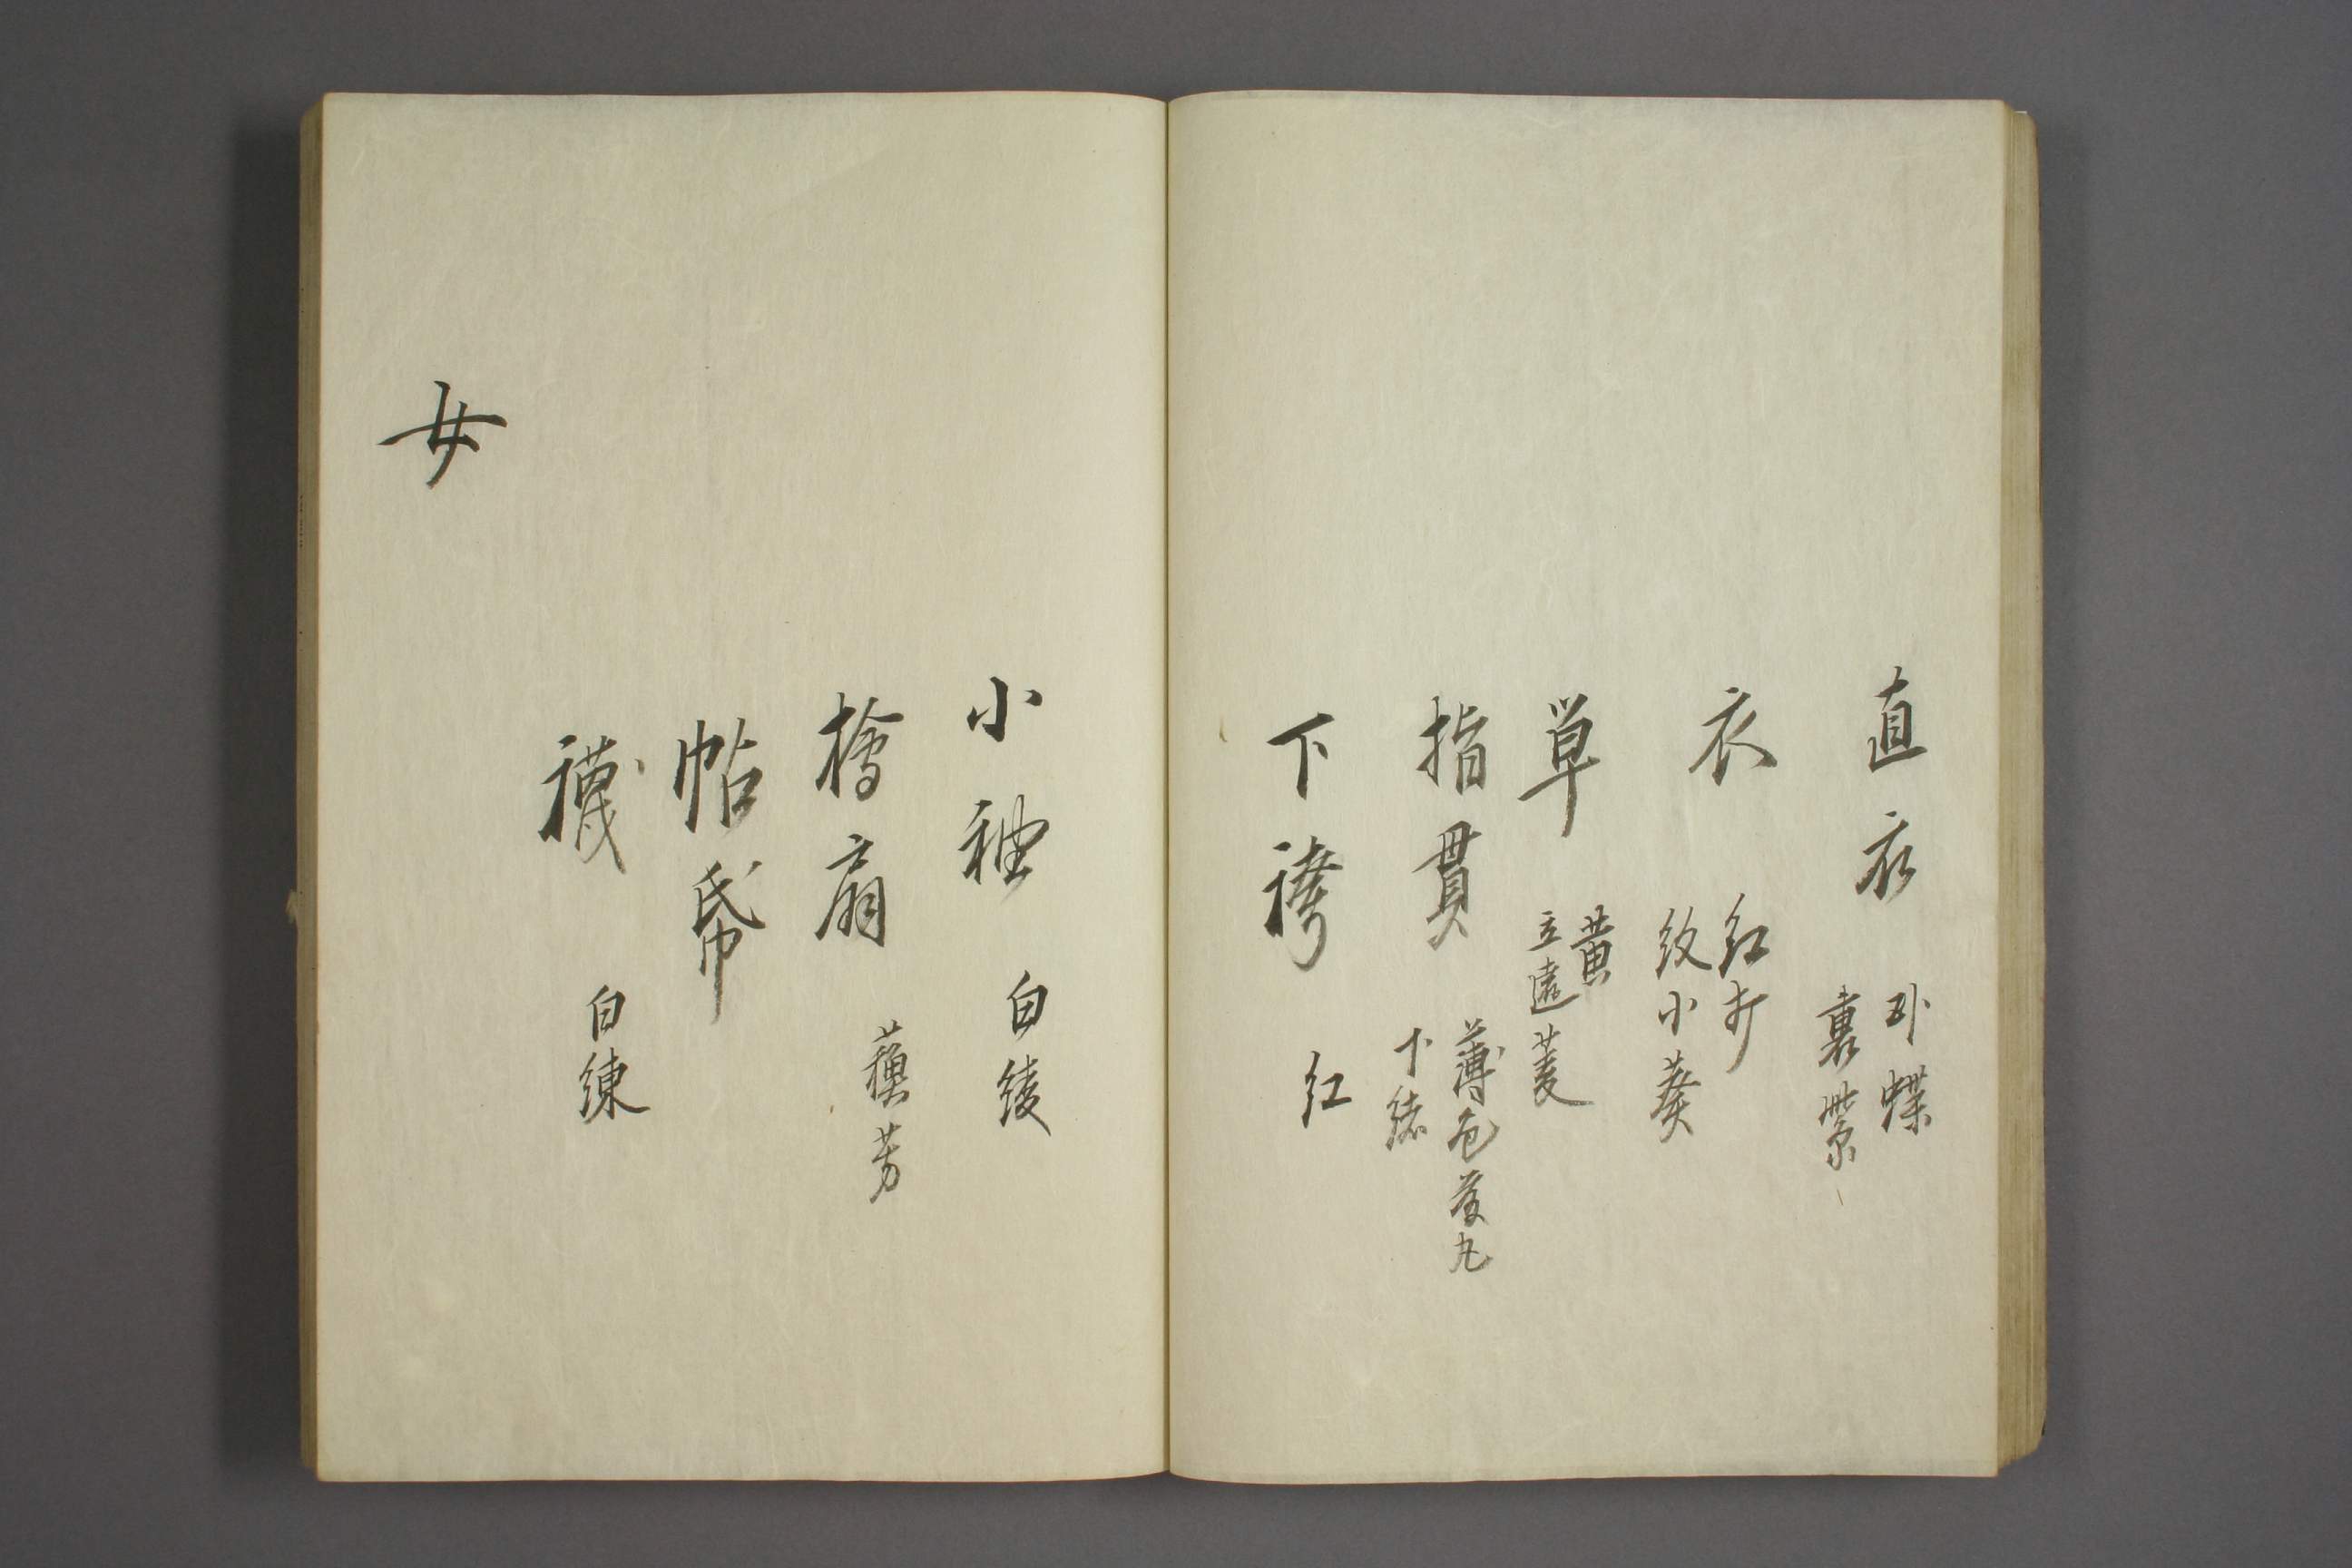 直衣
臥蝶
裏紫
衣
紅打
紋小葵
単
黄
立遠菱
指貫
薄色藤丸
下結
下袴
紅
小袖
白綾
檜扇
蘓芳
帖帋
襪
白練
女